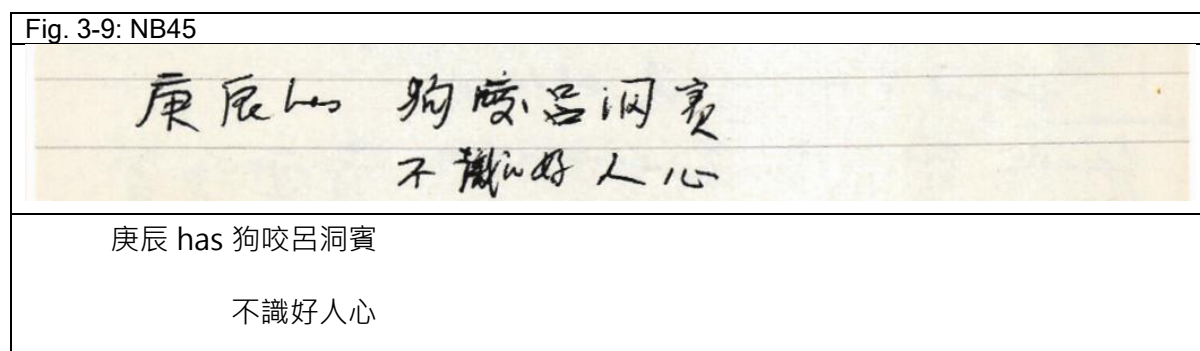 Fig. 3-9: NB45
庚辰 has 狗咬呂洞賓
不識好人心
庚辰 has 狗咬呂洞賓
不識好人心